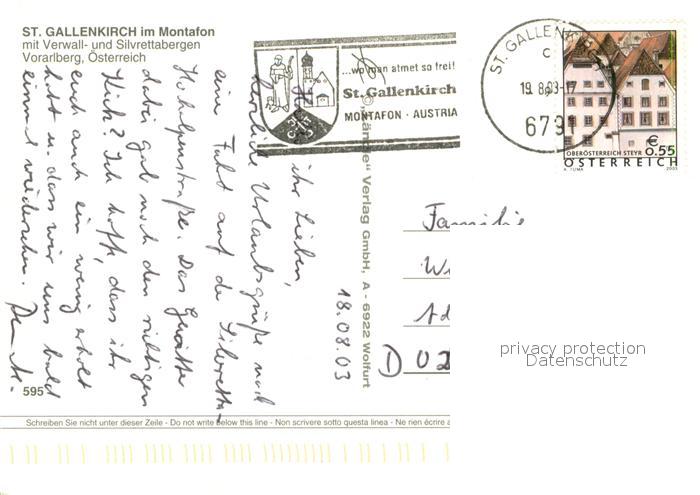 ST. GALLENKIRCH im Montafon
mit Verwall- und Silvrettabergen
Vorarlberg, Österreich
...wo man atmet so frei!
St.Gallenkirch
MONTAFON · AUSTRIA
ST. GALLENKIRCH
c
19. 8.03-17
6791
€
0.55
OBERÖSTERREICH STEYR
ÖSTERREICH
A. TUMA
2003
ihr Lieben,
herzliche Urlaubsgrüße nach
eine Fahrt auf der Silvretta-
Hochalpenstraße. Das Gewitter
dabei gab noch den richtigen
Kick! Ich hoffe, dass ihr
euch auch ein wenig erholt
habt u. dass wir uns bald
einmal wiedersehen.
18.08.03
Verlag GmbH, A - 6922 Wolfurt
Familie
D 02
595
Schreiben Sie nicht unter dieser Zeile - Do not write below this line - Non scrivere sotto questa linea - Ne rien écrire a
privacy protection
Datenschutz